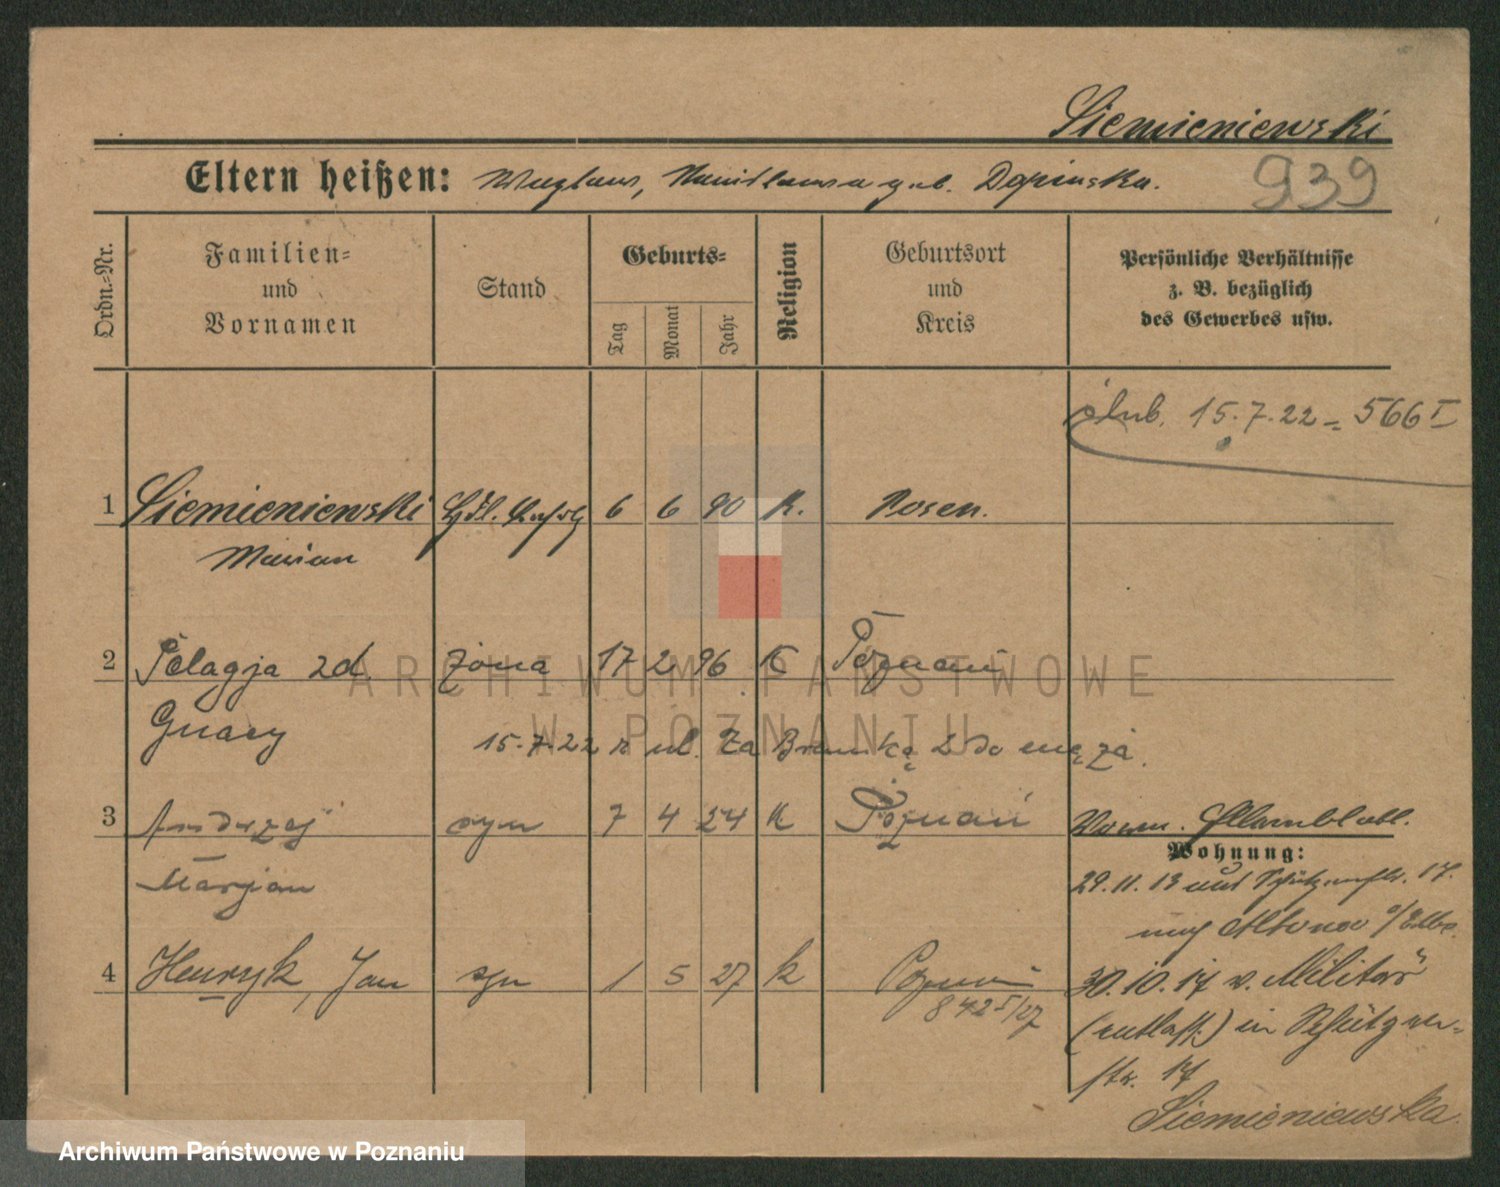 Siemieniewski
Eltern heißen: geb. Dopinska.
939
Ordn.-Nr.
Familien-
und
Vornamen
Stand
Geburts-
Tag
Monat
Jahr
Religion
Geburtsort
und
Kreis
Persönliche Verhältnisse
z. B. bezüglich
des Gewerbes usw.
ślub. 15.7.22 = 566 I
1 Siemieniewski 6 6 90 K. Posen.
Marian
2 Pelagja zd. żona 17 2 96 K Poznań
Gnacy
15.7.22 z ul. Za Bramką 2 do męża.
3 Andrzej syn 7 4 24 K Poznań
Marjan
Wohnung:
29.11.13 aus Schützenstr. 17.
nach Altona a/Elbe.
4 Henryk, Jan syn 1 5 27 k Poznań
842 I/27
30.10.17 v. Militär
(entlass.) in Schützen-
str. 17
Siemieniewska
ARCHIWUM PAŃSTWOWE
W POZNANIU
Archiwum Państwowe w Poznaniu